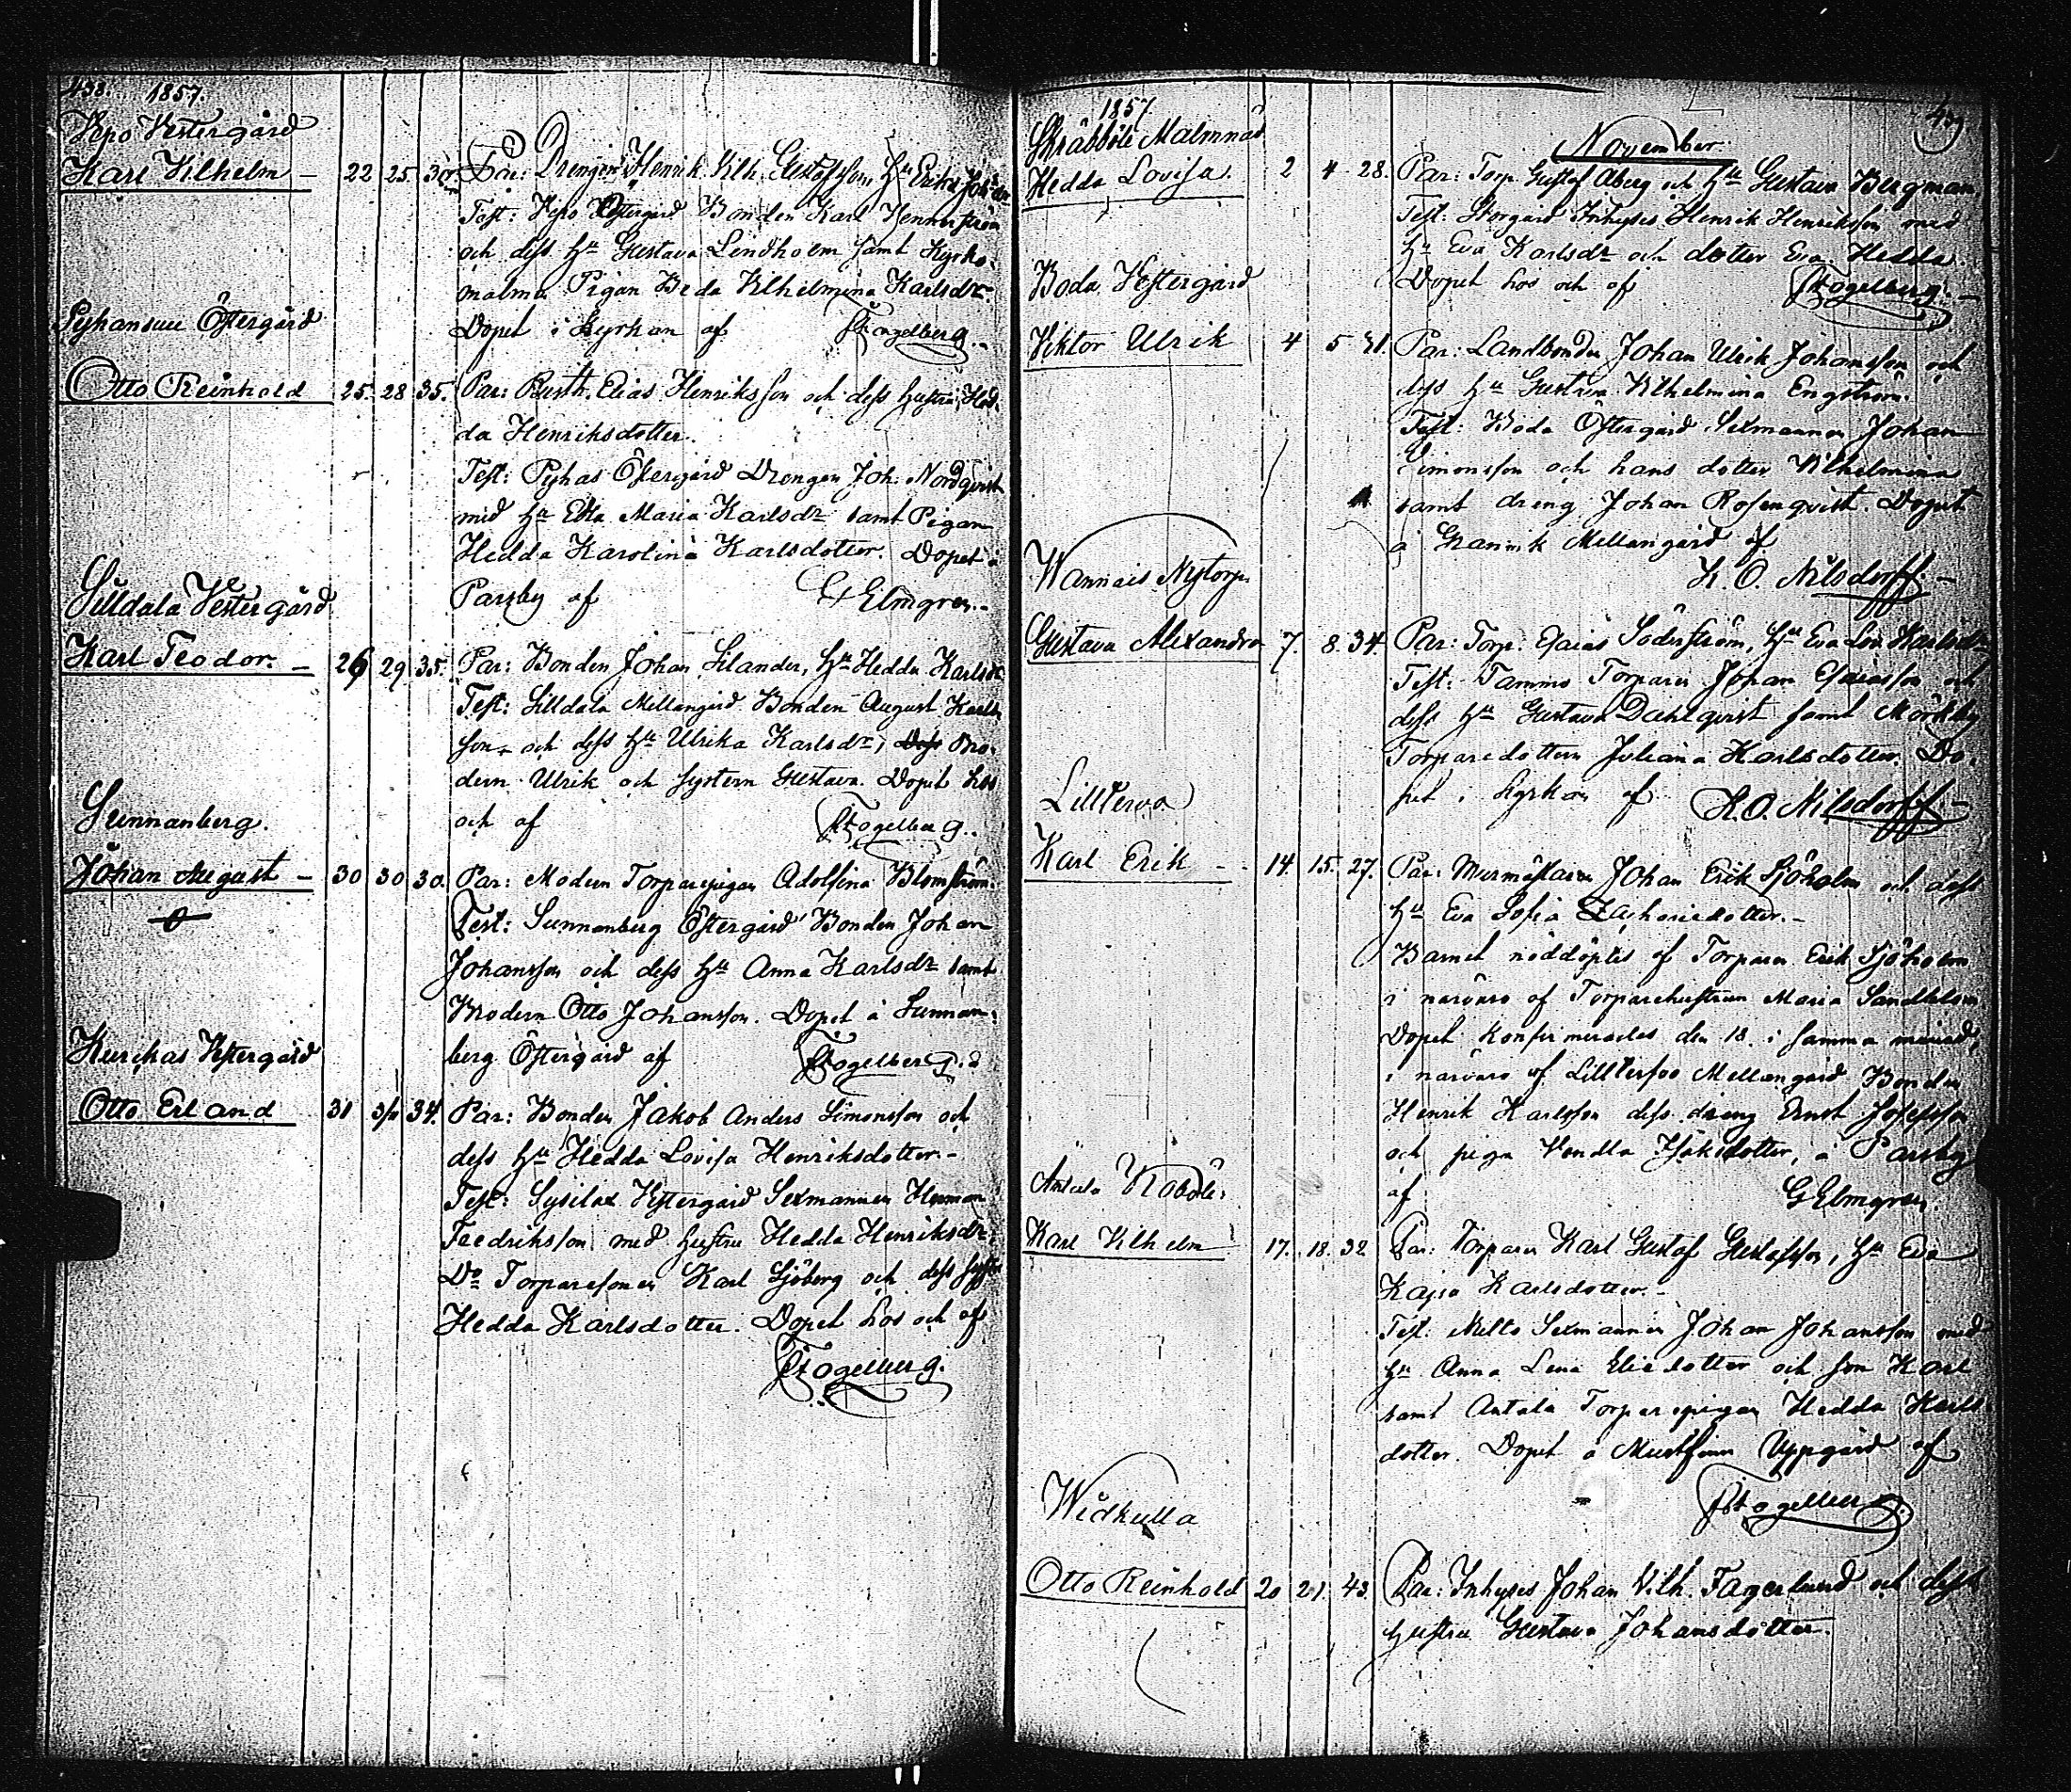 438. 1857.
Vepo Vestergård
Karl Vilhelm — 22 25 30. Par: Drengen Henrik Vilh. Gustafsson, Hu Erika
Test: Vepo Vestergård Bonden Karl Vennerström
och dess hu Gustava Lindholm samt Kyrko-
malms Pigan Beda Vilhelmina Karlsdr.
Dopet i Kyrkan af FFogelberg.
Pyhansuu Östergård
Otto Reinhold 25. 28 35. Par: Elias Henriksson och dess hustru Hed-
da Henriksdotter.
Test: Pyhas Östergård Drengen Joh. Nordqvist
med hu Edla Maria Karlsdr samt Pigan
Hedda Karolina Karlsdotter. Dopet i
Parsby af GElmgren.
Silldala Vestergård
Karl Teodor. — 26 29 35. Par: Bonden Johan Silander, hu Hedda Karlsdr
Test: Silldala Mellangård Bonden August Karls-
son och dess hu Ulrika Karlsdr, Bro-
dern Ulrik och system Gustava. Dopet hos
och af FFogelberg.
Sunnanberg.
Johan August — 30 30 30. Par: Modern Torparepigan Adolfina Blomström.
Test: Sunnanberg Östergård Bonden Johan
Johansson och dess hu Anna Karlsdr samt
Brodern Otto Johansson. Dopet å Sunnan-
berg Östergård af FFogelberg.
Kurckas Vestergård
Otto Erland 31 3/11 34. Par: Bonden Jakob Anders Simonsson och
dess hu Hedda Lovisa Henriksdotter.-
Test: Sysilax Vestergård Sexmannen Herman
Fredriksson med hustru Hedda Henriksdr
Do Torparesonen Karl Sjöberg och dess syster
Hedda Karlsdotter. Dopet hos och af
FFogelberg.
1857 439
Skräbböle Malmnäs November.
Hedda Lovisa. 2 4 28. Par: Torp. Gustaf Åberg och hu Gustava Bergman
Test: Storgård Inhyses Henrik Henriksson med
hu Eva Karlsdr och dotter Eva Hedda.
Dopet hos och af FFogelberg.
Boda Vestergård
Viktor Ulrik 4 5 31. Par: Landbonden Johan Ulrik Johansson och
dess hu Gustava Vilhelmina Engström.
Test: Boda Östergård Sexmannen Johan
Simonsson och hans dotter Vilhelmina
samt dreng Johan Rosenqvist. Dopet
å Mellangård af
K. O. Nilsdorff.
Wannais Nytorp.
Gustava Alexandra 7. 8. 34 Par: Torp. Esaias Söderström, hu Eva Lov. Karlsdr
Test: Tammo Torparen Johan Esaiasson och
dess hu Gustava Dahlqvist samt Mörkby
Torparedottern Juliana Karlsdotter. Do-
pet i kyrkan af K.O. Nilsdorff
Lillterva
Karl Erik — 14. 15. 27. Par: Murmästaren Johan Erik Sjöholm och dess
hu Eva Sofia Zachariedotter.-
Barnet nöddöptes af Torparen Erik Sjöholm
i närvaro af Torparehustrun Maria Sandblom
Dopet konfirmerades den 18. i samma månad,
i närvaro af Lillterfvo Mellangård Bonden
Henrik Karlsson dess dreng Ernst Josefsson
och piga Vendla Isaksdotter, å Parsby
af GElmgren.
Antala
Karl Vilhelm 17. 18. 32 Par: Torparen Karl Gustaf Gustafsson, hu Eva
Kajsa Karlsdotter.-
Test: Sexmannen Johan Johansson med
hu Anna Lena Eliedotter och son Karl
samt Antala Torparepigan Hedda Karls-
dotter. Dopet å Uppgård af
FFogelberg
Widkulla
Otto Reinhold 20 21. 43. Par: Inhyses Johan Vilh. Fagerlund och dess
hustru Gustava Johansdotter.